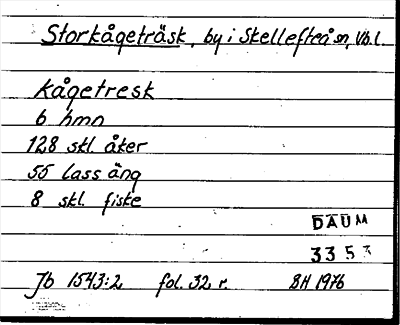 Storkågeträsk, by i Skellefteå sn, Vb.l.
kågetresk
6 hmn
128 skl. åker
55 lass äng
8 skl. fiske
DAUM
3353
Jb 1543:2 fol. 32 r. BH 1976